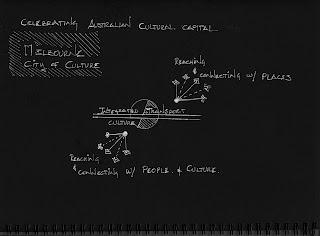 CELEBRATING AUSTRALIAN CULTURAL CAPITAL
MELBOURNE
CITY OF CULTURE
REACHING
& CONNECTING W/ PLACES
INTEGRATED TRANSPORT
CULTURE
REACHING
& CONNECTING W/ PEOPLE & CULTURE.